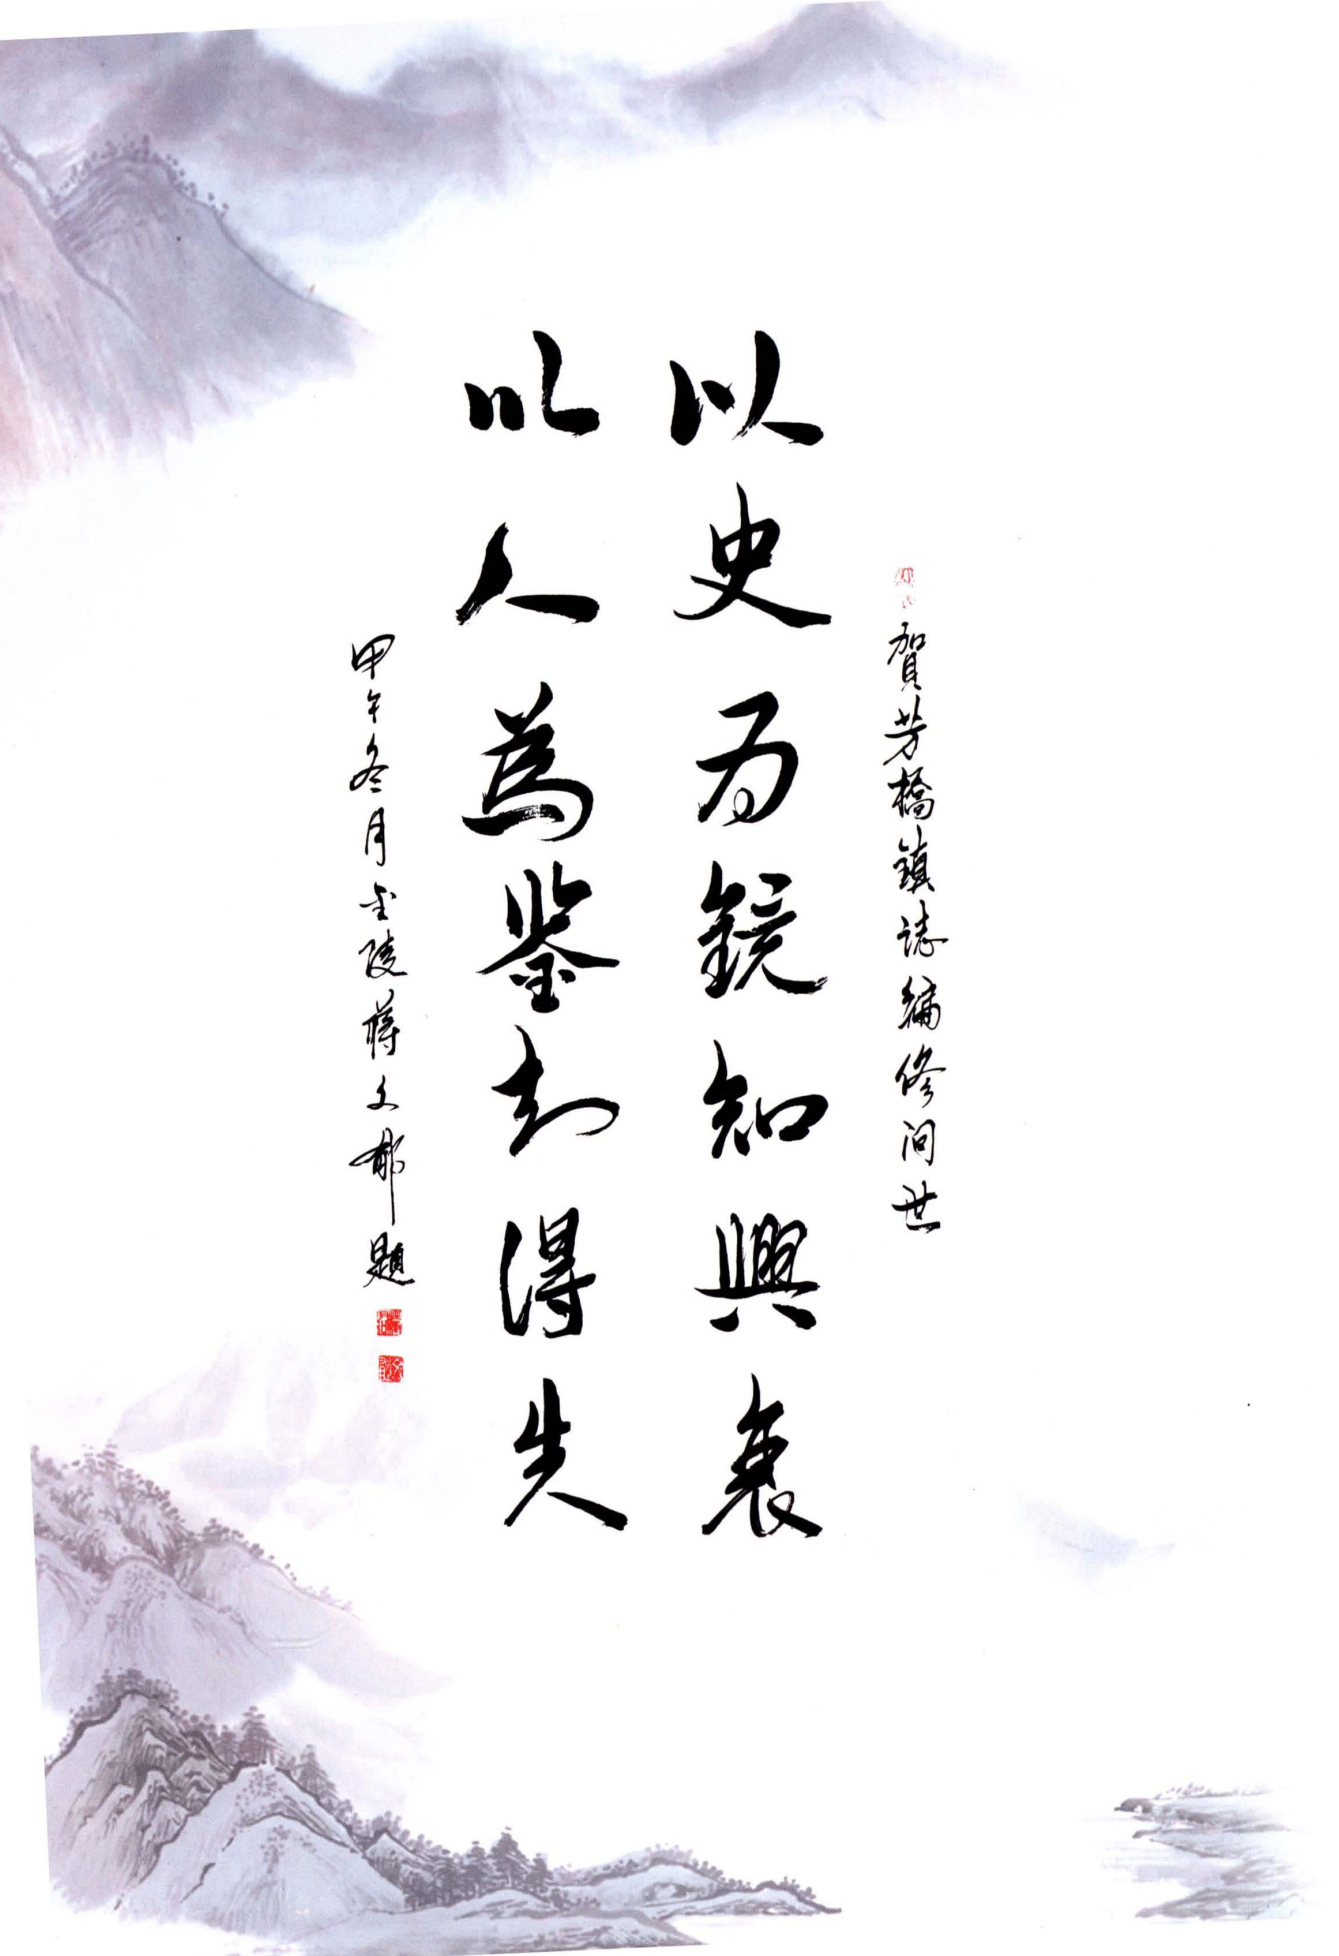 賀芳橋鎮誌編修问世
以史为鏡知興衰
以人為鉴知得失
甲午冬月金陵蒋文郁題